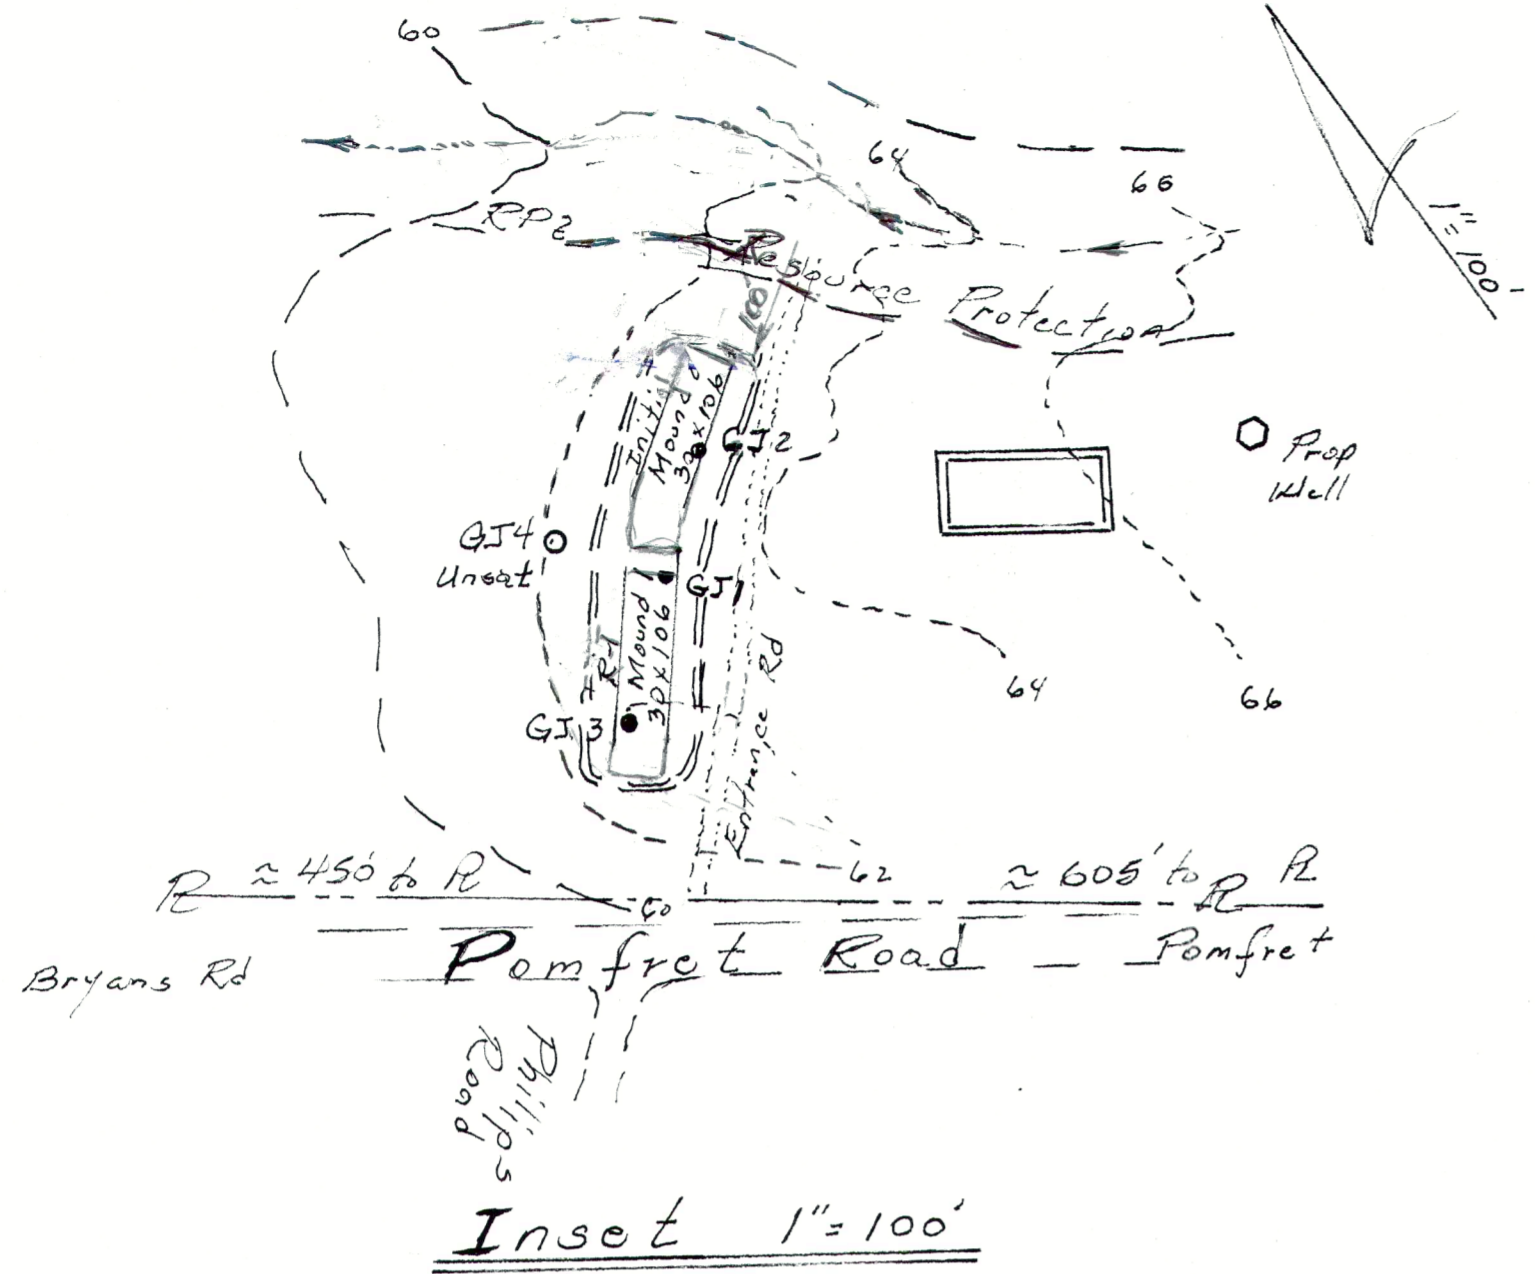 60
64
66
RPZ
Resource Protection
1"=100'
100
Initial
Mound
30x106
GJ2
Prop
Well
GJ4
Unsat
GJ1
R-1
Mound
30x106
GJ3
Entrance Rd
64
66
62
≈ 450' to
≈ 605' to
60
Pomfret Road
Pomfret
Bryans Rd
Philips
Road
Inset 1"=100'